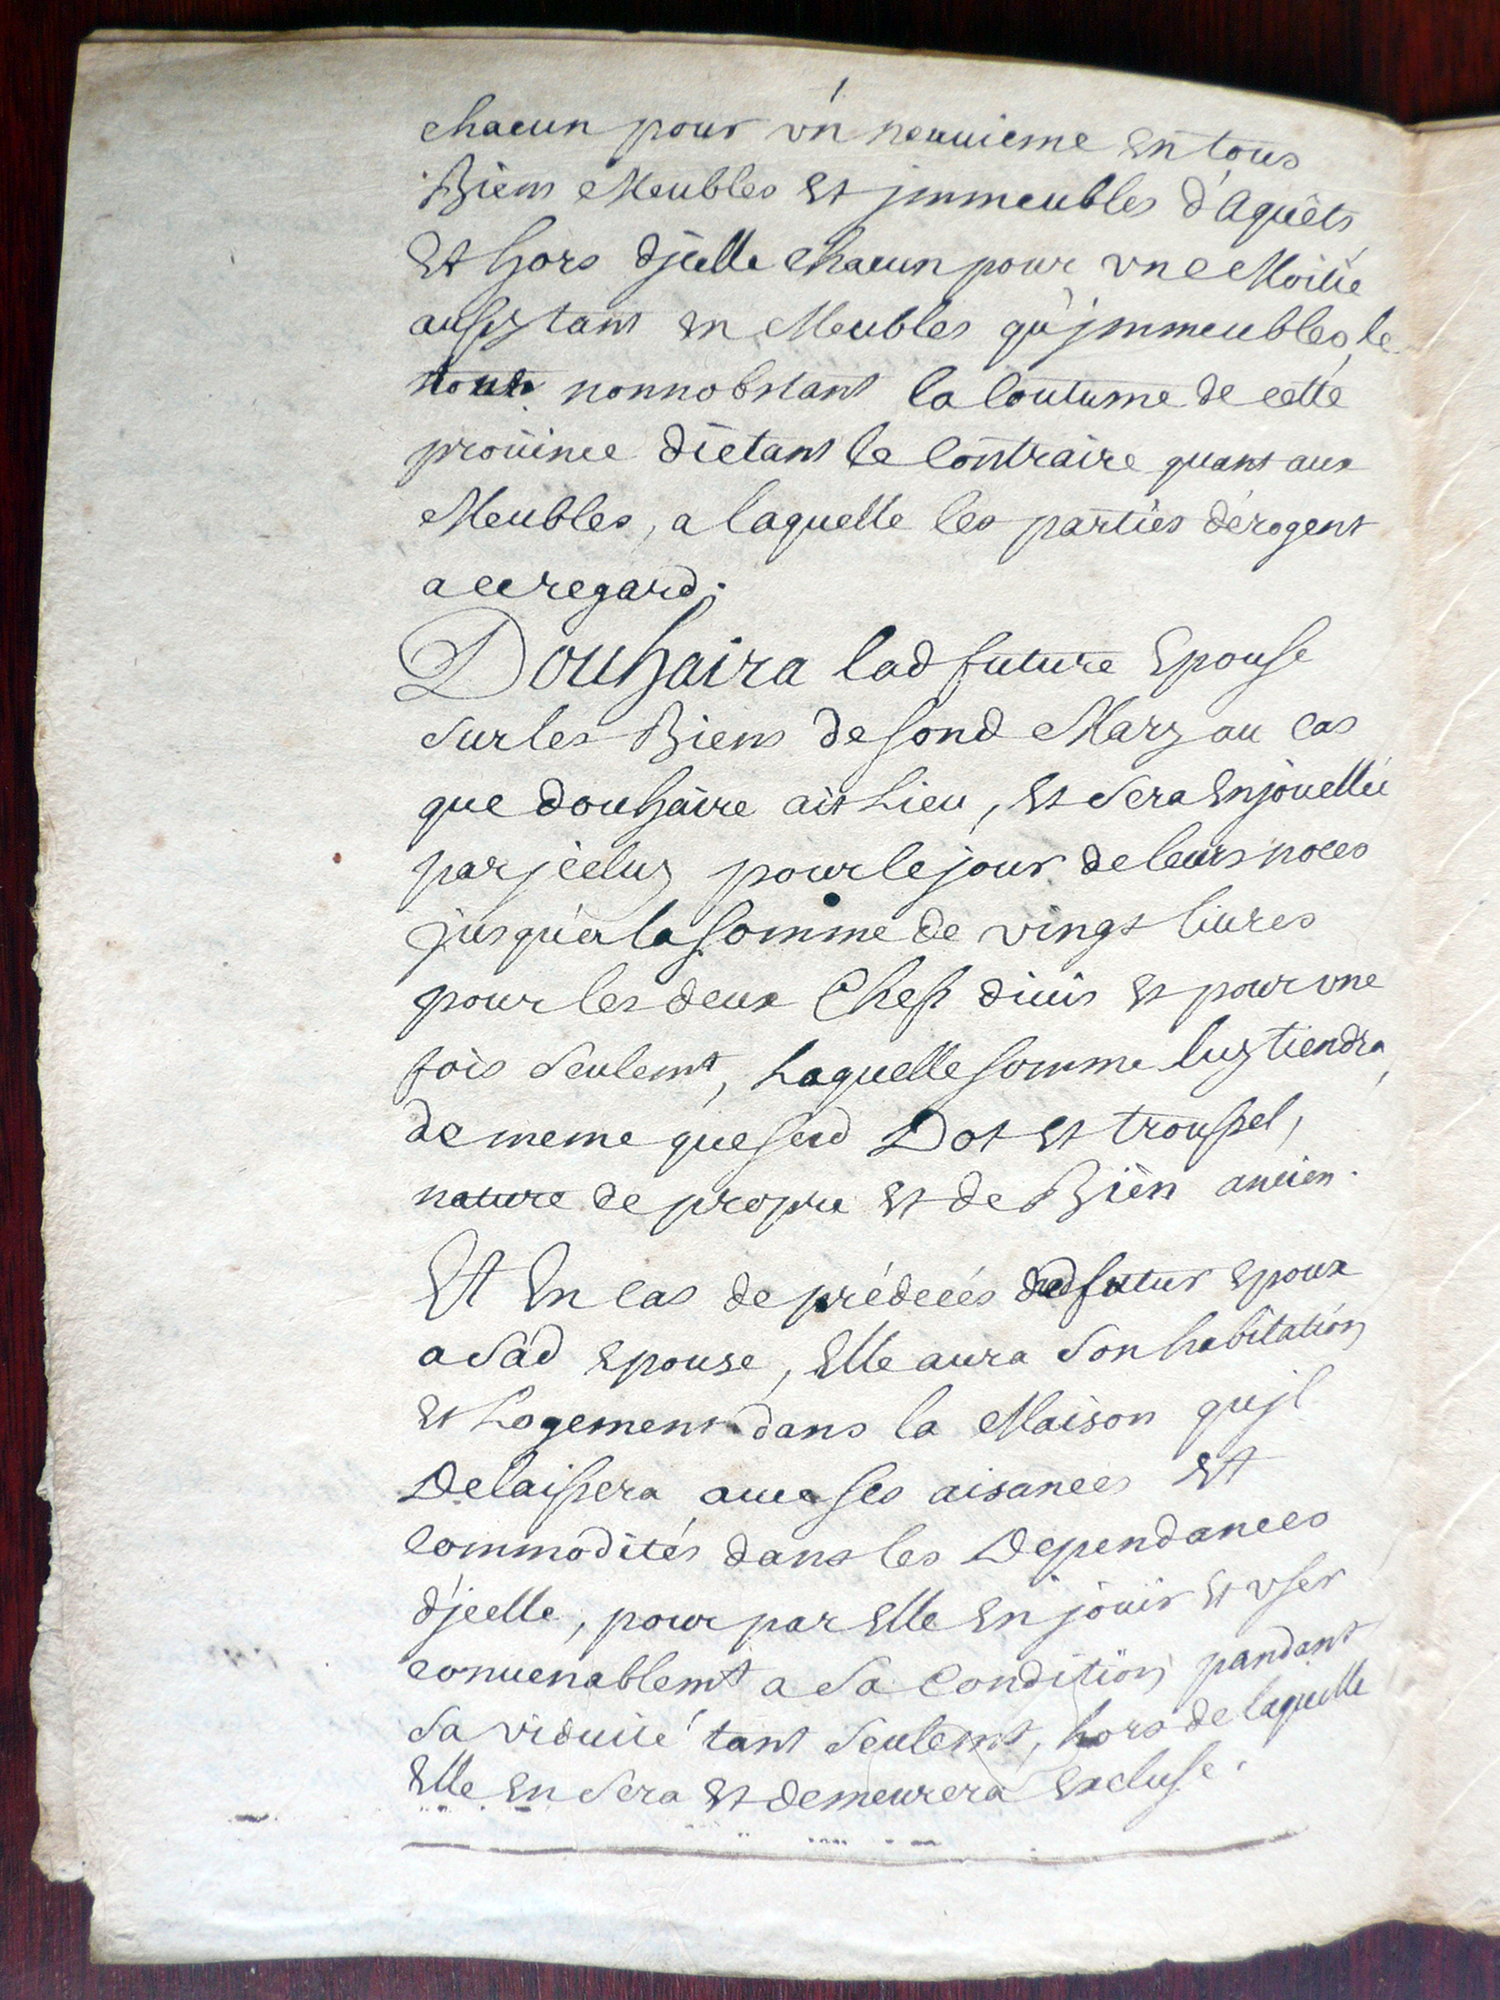 chacun pour vn neuuieme en tous
Biens Meubles et jmmeubles d'aquêts
et hors d'jcelle chacun pour vne Moitie
aussy tant en Meubles qu'jmmeubles, le
tout nonnobstant la Coutume de cette
proüince dictant le Contraire quant aux
Meubles, a laquelle les parties dérogent
a ce regard.
Douhaira lad future Epouse
sur les Biens de sond Mary au cas
que douhaire ait Lieu, et sera enjouellée
par jceluy pour le jour de leurs noces
jusqu'a la somme de vingt liures
pour les deux Chefs diuis et pour vne
fois seulemt, Laquelle somme luy tiendra,
de meme que sesd Dot et troussel,
nature de propre et de Bien ancien.
Et En cas de prédecés dud futur epoux
a sad epouse, elle aura son habitation
et Logement dans la Maison qu'jl
Delaissera auec ses aisances et
commodités dans les Dependances
d'jcelle, pour par elle en jouir et vser
conuenablemt a sa Condition pandant
sa viduité tant seulemt, hors de laquelle
elle en sera et demeurera excluse.